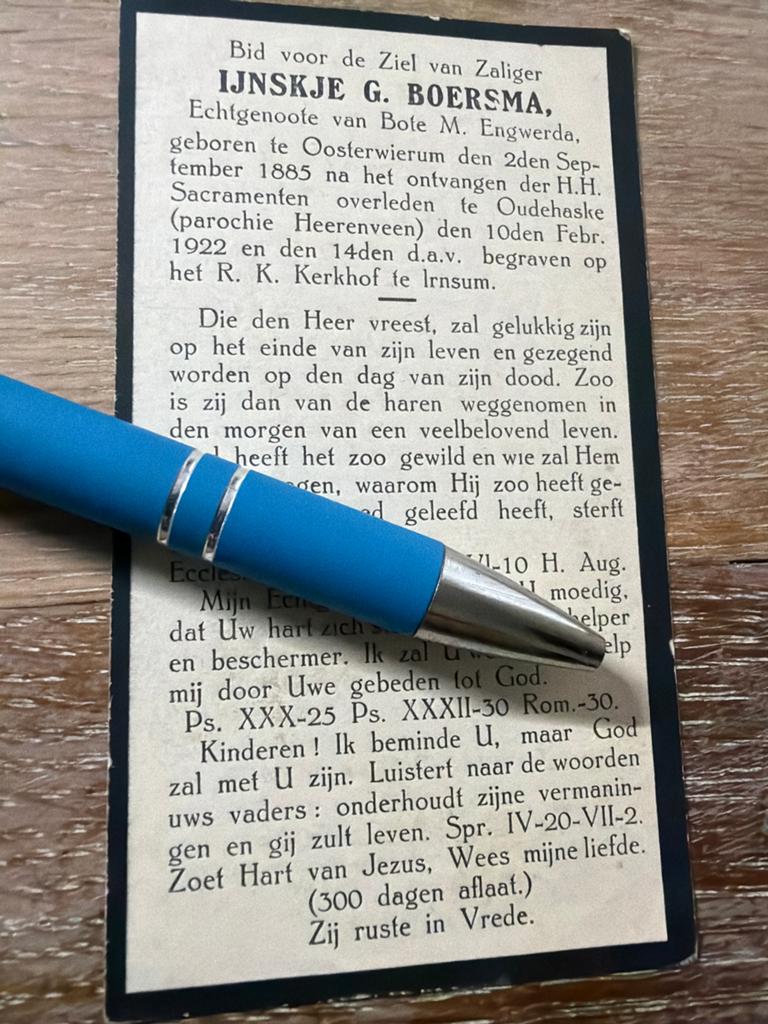 Bid voor de Ziel van Zaliger
IJNSKJE G. BOERSMA,
Echtgenoote van Bote M. Engwerda,
geboren te Oosterwierum den 2den Sep-
tember 1885 na het ontvangen der H.H.
Sacramenten overleden te Oudehaske
(parochie Heerenveen) den 10den Febr.
1922 en den 14den d.a.v. begraven op
het R. K. Kerkhof te Irnsum.
Die den Heer vreest, zal gelukkig zijn
op het einde van zijn leven en gezegend
worden op den dag van zijn dood. Zoo
is zij dan van de haren weggenomen in
den morgen van een veelbelovend leven.
heeft het zoo gewild en wie zal Hem
waarom Hij zoo heeft ge-
geleefd heeft, sterft
H. Aug.
Mijn moedig,
dat Uw hart
en beschermer. Ik zal
mij door Uwe gebeden tot God.
Ps. XXX-25 Ps. XXXII-30 Rom.-30.
Kinderen! Ik beminde U, maar God
zal met U zijn. Luistert naar de woorden
uws vaders: onderhoudt zijne vermanin-
gen en gij zult leven. Spr. IV-20-VII-2.
Zoet Hart van Jezus, Wees mijne liefde.
(300 dagen aflaat.)
Zij ruste in Vrede.